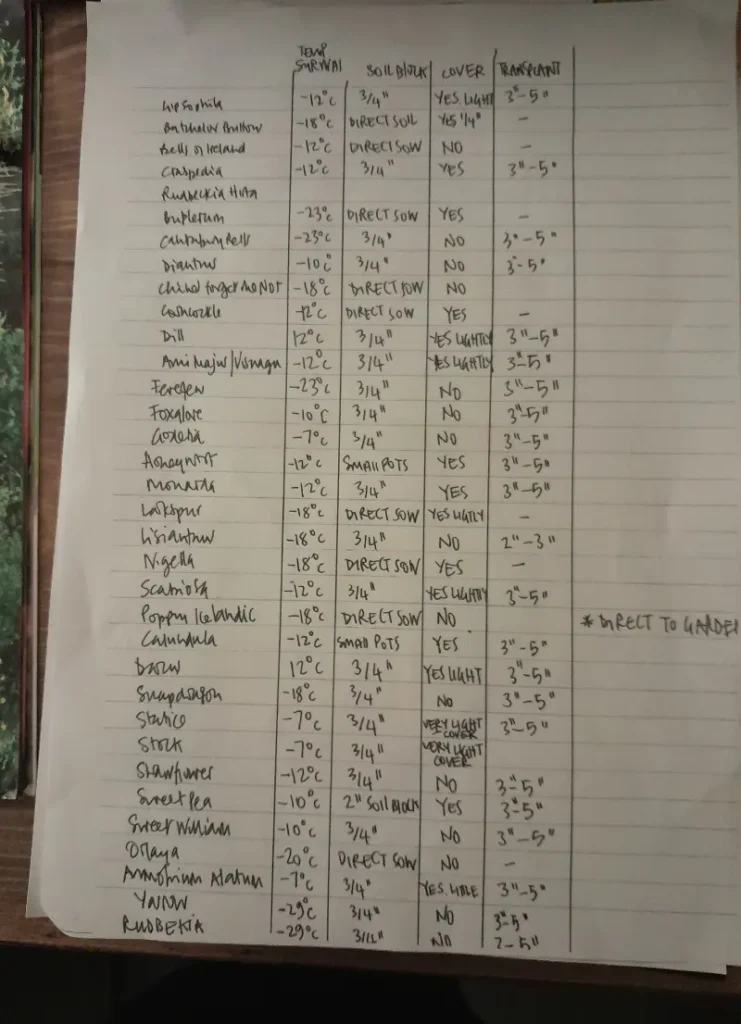 TEMP SURVIVAL SOIL BLOCK COVER TRANSPLANT
Gipsophila -12°C 3/4" YES LIGHT 3"-5"
Batchelor Button -18°C DIRECT SOIL YES 1/4" -
Bells of Ireland -12°C DIRECT SOW NO -
Craspedia -12°C 3/4" YES 3"-5"
Rudbeckia Hirta
Buplerum -23°C DIRECT SOW YES -
Canterbury Bells -23°C 3/4" NO 3"-5"
Dianthus -10°C 3/4" NO 3"-5"
Chinese forget Me Not -18°C DIRECT SOW NO
Corncockle -12°C DIRECT SOW YES -
Dill 12°C 3/4" YES LIGHTLY 3"-5"
Ami Majus/Visnaga -12°C 3/4" YES LIGHTLY 3"-5"
Feverfew -23°C 3/4" NO 3"-5"
Foxglove -10°C 3/4" NO 3"-5"
Godetia -7°C 3/4" NO 3"-5"
Honeywort -12°C SMALL POTS YES 3"-5"
Monarda -12°C 3/4" YES 3"-5"
Larkspur -18°C DIRECT SOW YES LIGTLY -
Lisianthus -18°C 3/4" NO 2"-3"
Nigella -18°C DIRECT SOW YES -
Scabiosa -12°C 3/4" YES LIGHTLY 3"-5"
Poppy Icelandic -18°C DIRECT SOW NO * DIRECT TO GARDEN
Calundula -12°C SMALL POTS YES 3"-5"
12°C 3/4" YES LIGHT 3"-5"
Snapdragon -18°C 3/4" NO 3"-5"
Statice -7°C 3/4" VERY LIGHT COVER 3"-5"
Stock -7°C 3/4" VERY LIGHT COVER
Strawflower -12°C 3/4" NO 3"-5"
Sweet Pea -10°C 2" SOIL BLOCK YES 3"-5"
Sweet William -10°C 3/4" NO 3"-5"
Orlaya -20°C DIRECT SOW NO -
Ammobium Alatum -7°C 3/4" YES 3"-5"
YARROW -29°C 3/4" NO 3"-5"
RUDBEKIA -29°C NO 2-5"